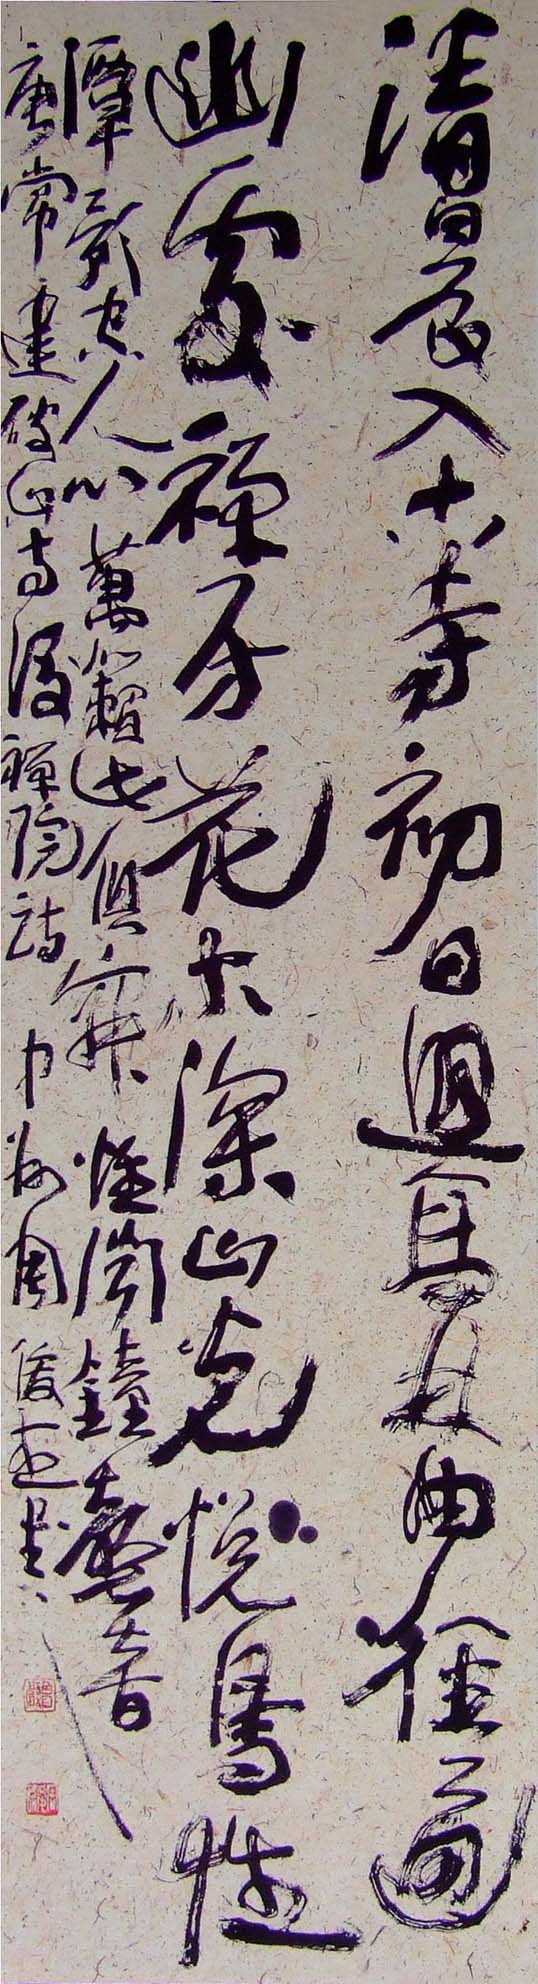 清晨入古寺初日照高林曲徑通
幽處禪房花木深山光悅鳥性
潭影空人心萬籟此俱寂惟聞鐘磬音
唐常建破山寺後禪院詩 中州周俊杰書